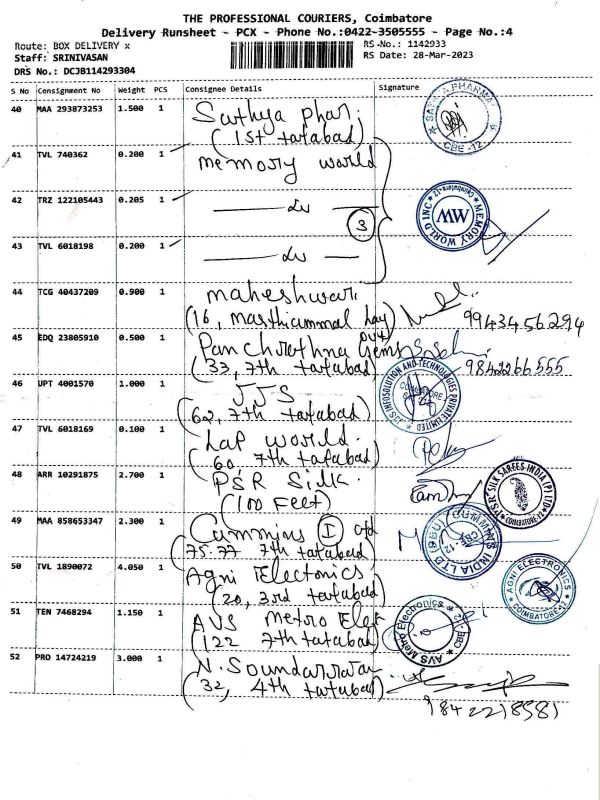 THE PROFESSIONAL COURIERS, Coimbatore
Delivery Runsheet - PCX - Phone No.:0422-3505555 - Page No.:4
Route: BOX DELIVERY x
RS-No.: 1142933
Staff: SRINIVASAN
RS Date: 28-Mar-2023
DRS No.: DCJB114293304
S No Consignment No Weight PCS Consignee Details Signature
40 MAA 293873253 1.500 1 Sathya phar,
(1st tatabad)
CBE-12
41 TVL 740362 0.200 1 memory world
42 TRZ 122105443 0.205 1
3
MEMORY WORLD INC Coimbatore-12
MW
43 TVL 6018198 0.200 1
44 TCG 40437209 0.900 1 maheshwari
(16, Masthiammal Lay out)
9943456294
45 EDQ 23805910 0.500 1 Panchrathna Gems
(33, 7th tatabad)
9842266555
46 UPT 4001570 1.000 1 JJS
(62, 7th tatabad)
INFOSOLUTION AND TECHNOLOGIES PRIVATE LIMITED
47 TVL 6018169 0.100 1 Lap world.
(60, 7th tatabad)
48 ARR 10291875 2.700 1 PSR Silk.
(100 Feet)
"PSR" SILK SAREES INDIA (P) LTD
COIMBATORE
49 MAA 858653347 2.300 1 Cummins I
(75.77 7th tatabad)
CUMMINS INDIA LTD
CBE-12
50 TVL 1890072 4.050 1 Agni Electonics
(20, 3rd tatabad)
AGNI ELECTRONICS
COIMBATORE-12
51 TEN 7468294 1.150 1 AVS Metro Elet
(122 7th tatabad)
AVS Metro Electronics
52 PRO 14724219 3.000 1 N. Soundarrajan
(32, 4th tatabad)